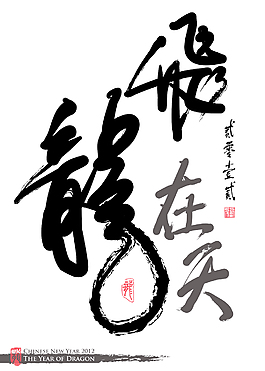 飛龍在天
貳零壹貳
龍
CHINESE NEW YEAR 2012
THE YEAR OF DRAGON